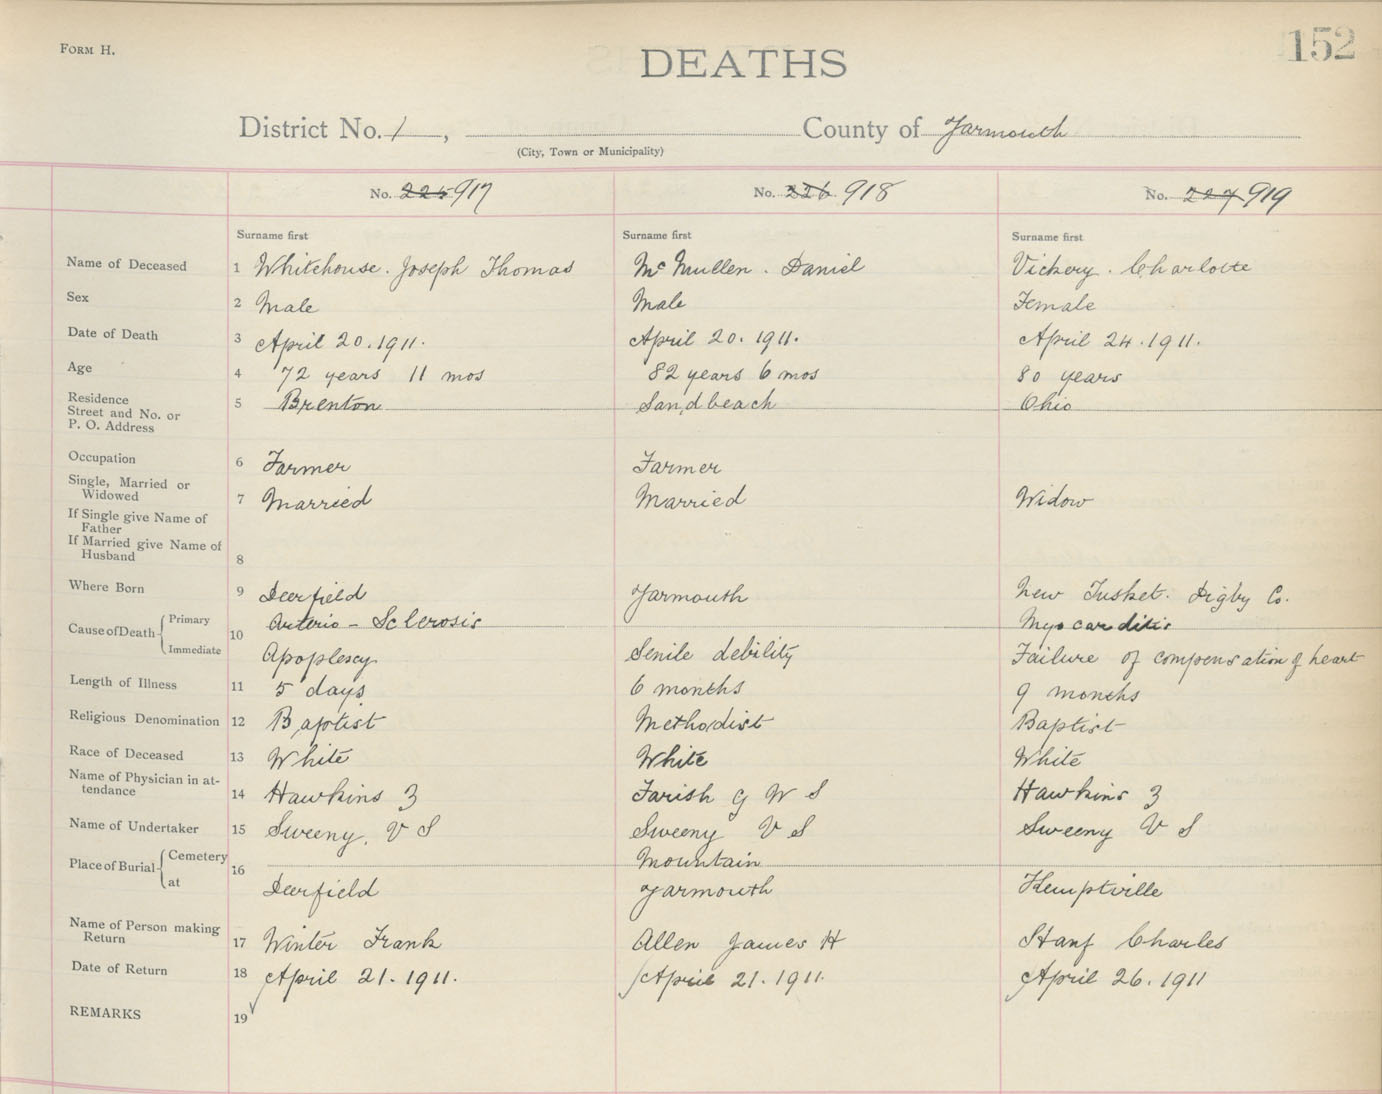 FORM H.
152
DEATHS
District No. 1, County of Yarmouth
(City, Town or Municipality)
No. 225 917 No. 226 918 No. 227 919
Surname first Surname first Surname first
Name of Deceased 1 Whitehouse. Joseph Thomas McMullen. Daniel Vickery. Charlotte
Sex 2 Male Male Female
Date of Death 3 April 20. 1911. April 20. 1911. April 24. 1911.
Age 4 72 years 11 mos 82 years 6 mos 80 years
Residence
Street and No. or 5 Brenton Sandbeach Ohio
P. O. Address
Occupation 6 Farmer Farmer
Single, Married or
Widowed 7 Married Married Widow
If Single give Name of
Father
If Married give Name of
Husband 8
Where Born 9 Deerfield Yarmouth New Tusket. Digby Co.
Cause of Death Primary 10 Arterio-Sclerosis Myocarditis
Immediate Apoplexy Senile debility Failure of compensation of heart
Length of Illness 11 5 days 6 months 9 months
Religious Denomination 12 Baptist Methodist Baptist
Race of Deceased 13 White White White
Name of Physician in at-
tendance 14 Hawkins Z Farish G W S Hawkins Z
Name of Undertaker 15 Sweeny, V S Sweeny V S Sweeny V S
Place of Burial Cemetery 16 Mountain
at Deerfield Yarmouth Kemptville
Name of Person making
Return 17 Winter Frank Allen James H Charles
Date of Return 18 April 21. 1911. April 21. 1911. April 26. 1911
REMARKS 19